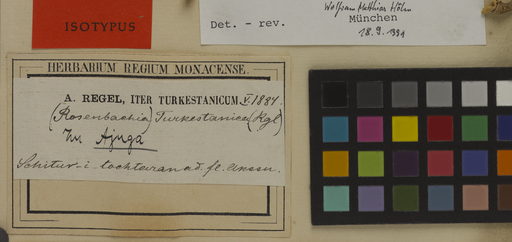 ISOTYPUS
Wolfram Matthias Höhn
Det. - rev. München
18.9.1991
HERBARIUM REGIUM MONACENSE.
A. REGEL, ITER TURKESTANICUM V.1884.
(Rosenbachia) Turkestanica (Rgl)
Zu Ajuga
Schitur-i tochtaran ad. fl.